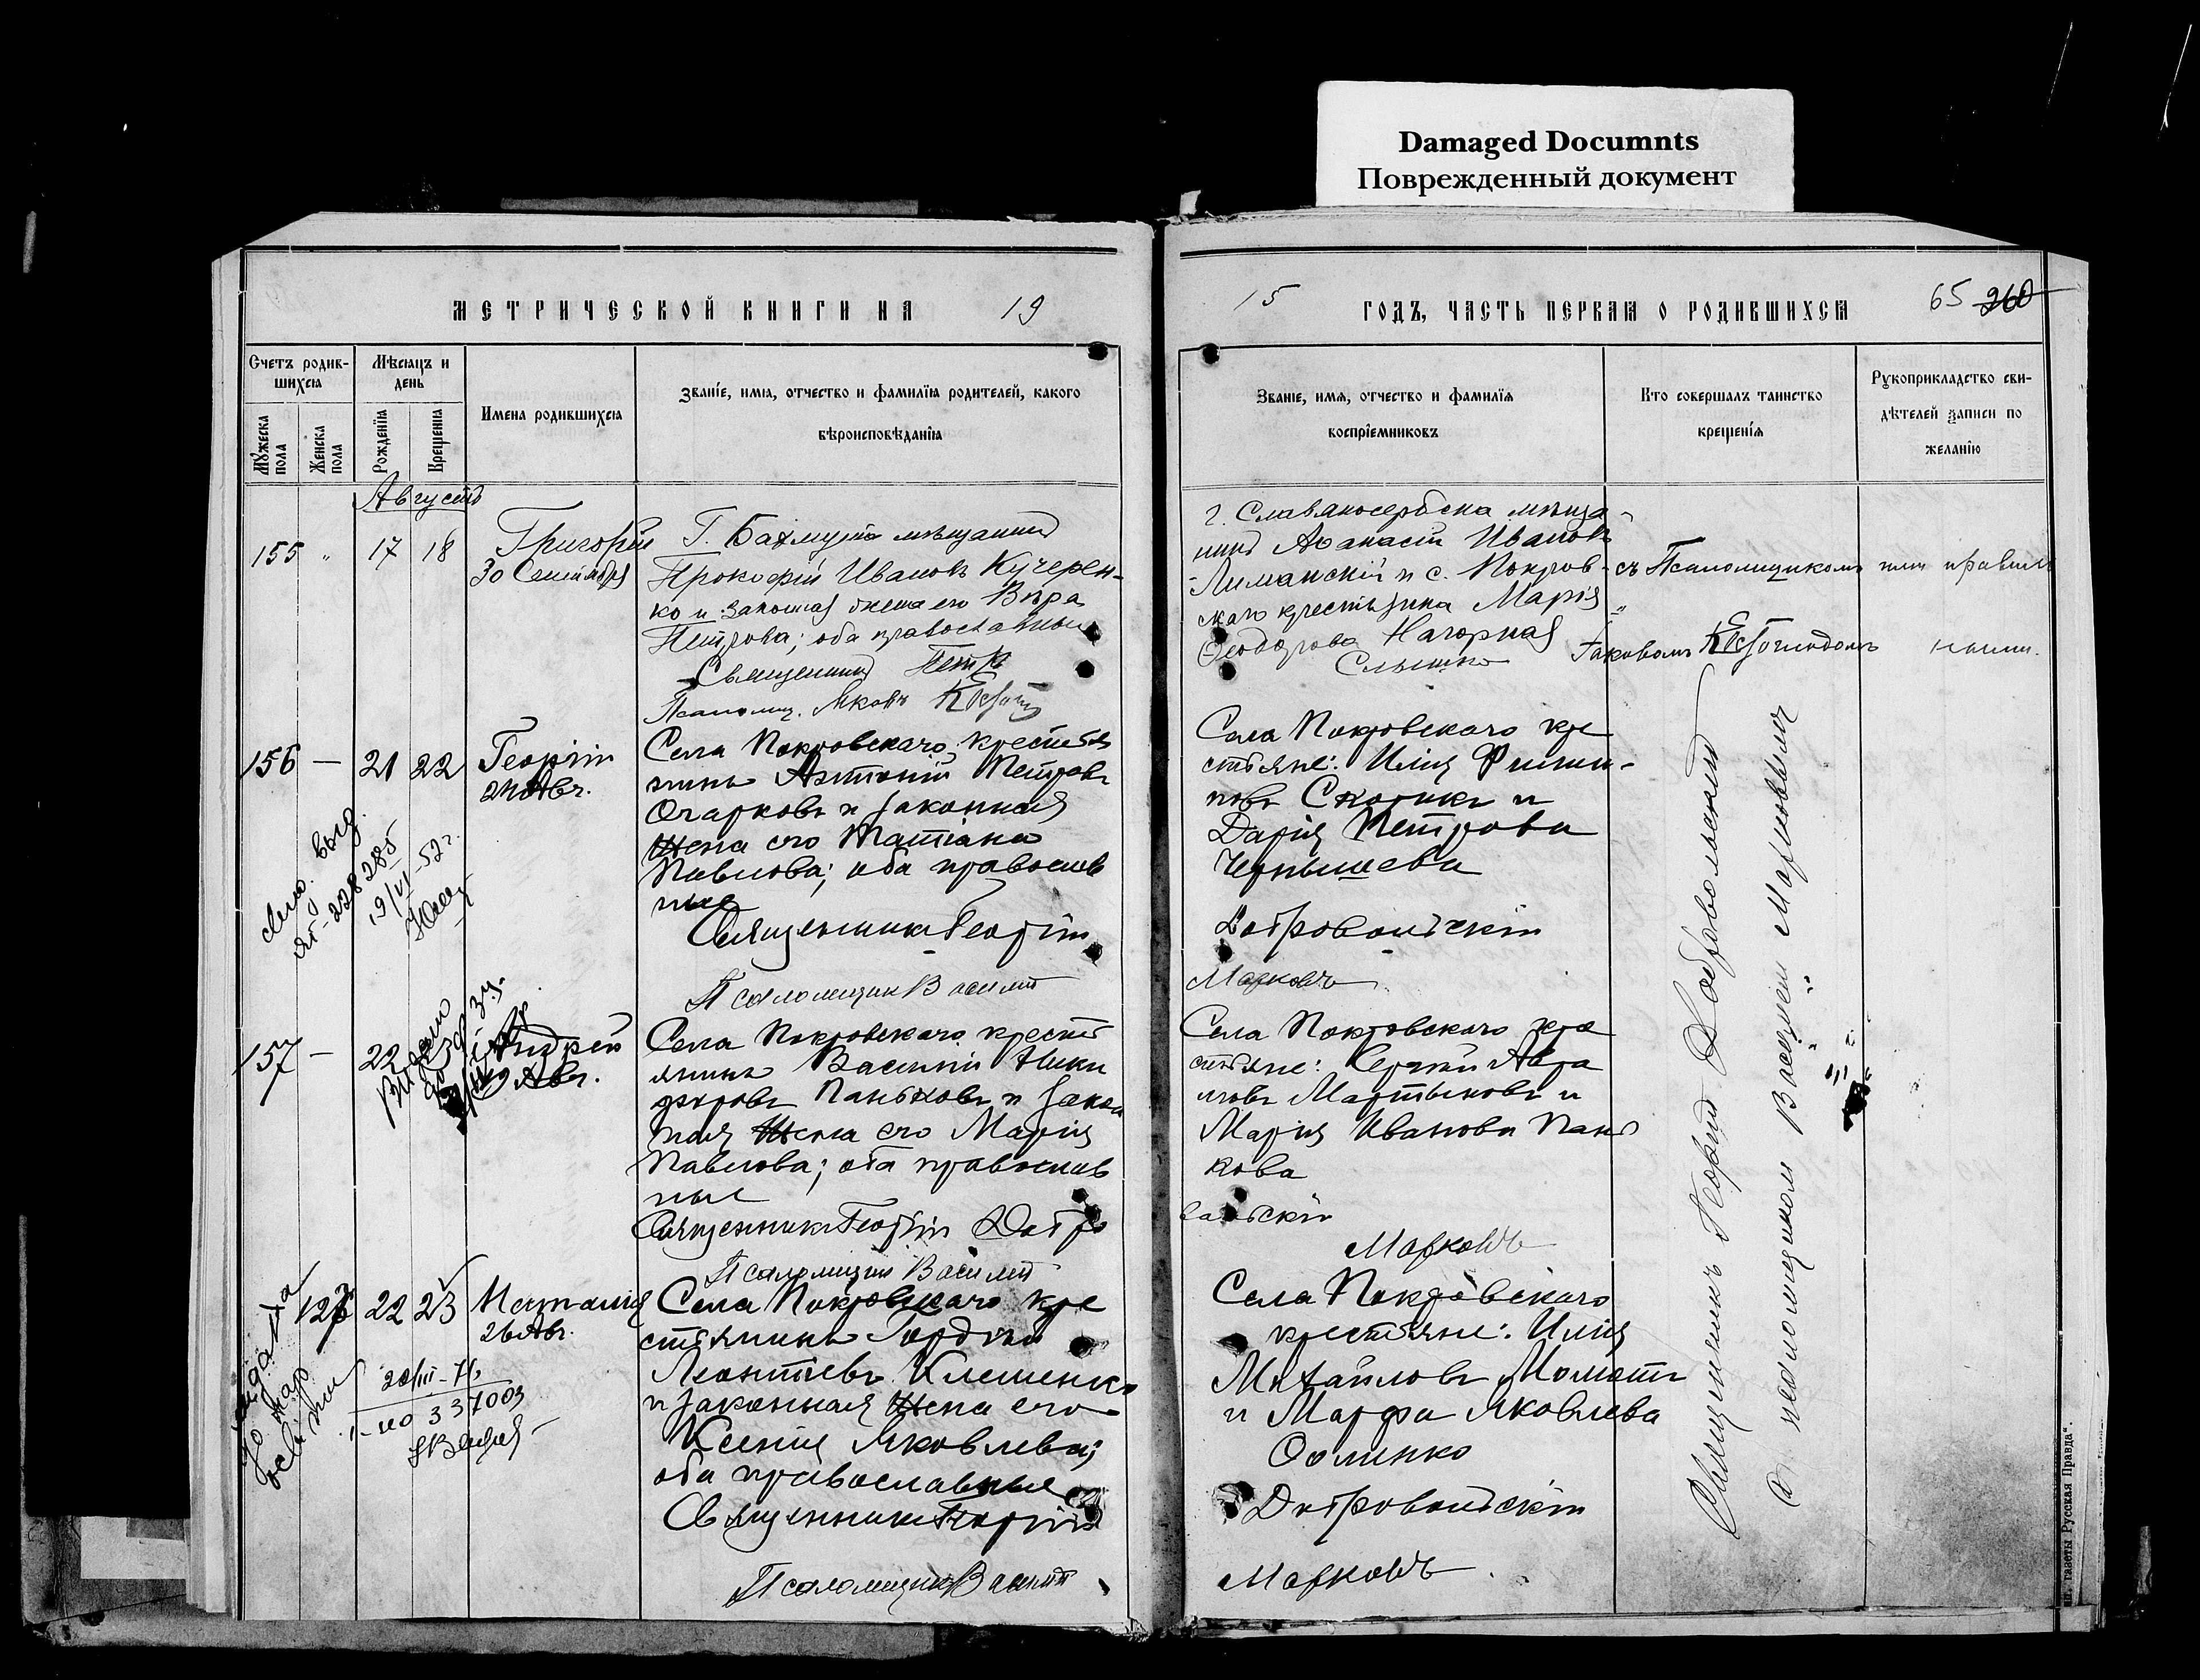 Damaged Documnts
Поврежденный документ
МЕТРИЧЕСКОЙ КНИГИ НА 19
15 ГОДЪ, ЧАСТЬ ПЕРВАЯ О РОДИВШИХСЯ
65 260
Счетъ родив-
шихся
Мѣсяцъ и
день
Мужеска
пола
Женска
пола
Рожденїя
Крещенїя
Имена родившихся
Званїе, имя, отчество и фамилїя родителей, какого
вѣроисповѣданїя
Званїе, имя, отчество и фамилїя
воспрїемниковъ
Кто совершалъ таинство
крещенїя
Рукоприкладство сви-
дѣтелей записи по
желанїю
Августъ
155 " 17 18 Григорій
30 Сентября
Г. Бахмута мѣщанинъ
Прокофій Ивановъ Кучерен-
ко и законная жена его Вѣра
Петрова; оба православные
Священникъ Петръ
Псаломщ. Яковъ
г. Славяносербска мѣща-
нинъ Аѳанасій Ивановъ
Лиманскій и с. Покров-
скаго крестьянка Марія
Ѳеодорова Нагорная
Слышко
съ Псаломщикомъ
Іаковомъ
156 — 21 22 Георгій
24 Авг.
Села Покровскаго крестья
нинъ Антоній Петровъ
Очарковъ и законная
жена его Татіана
Павлова; оба православ
ные
Священникъ Георгій
Псаломщикъ Василій
Села Покровскаго кре
стьяне: Илія Филип-
повъ Скотикъ и
Дарія Петрова
Чернышева
Добровольскій
Марковъ
выд.
228285
19/VI-52 г.
157 — 22 Андрей
Авг.
Села Покровскаго крестья
нинъ Василій Ники
форовъ Паньковъ и закон
ная жена его Марія
Павлова; оба православ
ные
Священникъ Георгій Добро
Псаломщикъ Василій
Села Покровскаго кре
стьяне: Сергій Авра
мовъ Мартыновъ и
Марія Иванова Пань
кова
вольскій
Марковъ
22 23 Наталія
26 Авг.
Села Покровскаго кре
стьянинъ Гордій
Леонтіевъ Клешенко
и законная жена его
Ксенія Яковлева;
оба православные
Священникъ Георгій
Псаломщикъ Василій
Села Покровскаго
крестьяне: Илія
Михайловъ Моматъ
и Марфа Яковлева
Добровольскій
Марковъ
20/III-76
337003
Священникъ Георгій Добровольскій
съ псаломщикомъ Василіем Марковымъ
газеты Русская Правда".